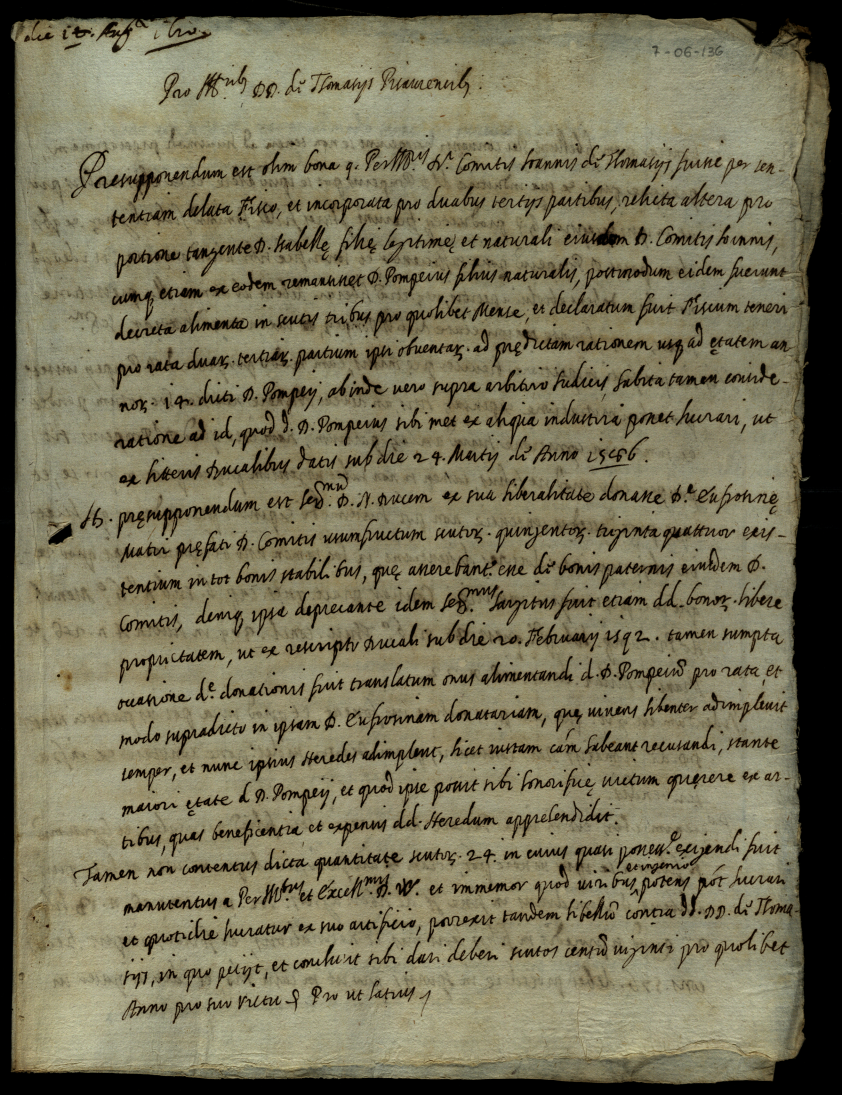 die 14. Aug.
7-06-136
Pro Ill.ribus DD. de Thomasijs Pisauriensibus.
Presupponendum est olim bona q. PerIll.ris D. Comitis Ioannis de Thomasijs fuisse per sen-
tentiam delata Fisco, et incorporata pro duabus tertijs partibus, relicta altera pro
portione tangente D. Isabellę filię legitimę et naturali eiusdem D. Comitis Ioannis,
cumq. etiam ex eodem remansisset D. Pompeius filius naturalis, postmodum eidem fuerunt
decreta alimenta in scutis tribus pro quolibet Mense, et declaratum fuit Fiscum teneri
pro rata duar. tertiar. partium ipsi obventar. ad prędictam rationem usq. ad ętatem an
nor. 14. dicti D. Pompeij, ab inde vero supra arbitrio Iudicis, habita tamen conside-
ratione ad id, quod d. D. Pompeius sibi met ex aliqua industria posset lucrari, ut
ex litteris Ducalibus datis sub die 24. Martij de Anno
It. pręsupponendum est Ser.mum D. N. Ducem ex sua liberalitate donasse D.ę Eufrosinę
Matri pręfati D. Comitis usumfructum scutor. quingentor. triginta quattuor exis-
tentium in tot bonis stabilibus, quę asserebant.r esse de bonis paternis eiusdem D.
Comitis, deniq. ipsa deprecante idem Ser.mus largitus fuit etiam dd. bonor. libere
proprietatem, ut ex rescripto Ducali sub die 20. Februarij 1592. tamen sumpta
occasione d.ę donationis fuit translatum onus alimentandi d. D. Pompeium pro rata et
modo supradicto in ipsam D. Eufrosinam donatariam, quę vivens libenter adimplevit
semper, et nunc ipsius Heredes adimplent, licet iustam cām habeant recusandi, stante
maiori ętate d. D. Pompeij, et quod ipse possit sibi honorificę victum quęrere ex ar-
tibus, quas beneficentia et expensis dd. Heredum apprehendidit.
Tamen non contentus dicta quantitate scutor. 24. in cuius quasi possess.e exigendi fuit
manutentus a PerIll.bus et Excell.mis D. V. et immemor quod viribus et ingenio potens pōt lucrari
et quotidie lucratur ex suo artificio, porrexit tandem libellum contra dd. DD. de Thoma-
sijs, in quo petijt, et conclusit sibi dari deberi scutos centum viginti pro quolibet
Anno pro suo victu Pro ut latius